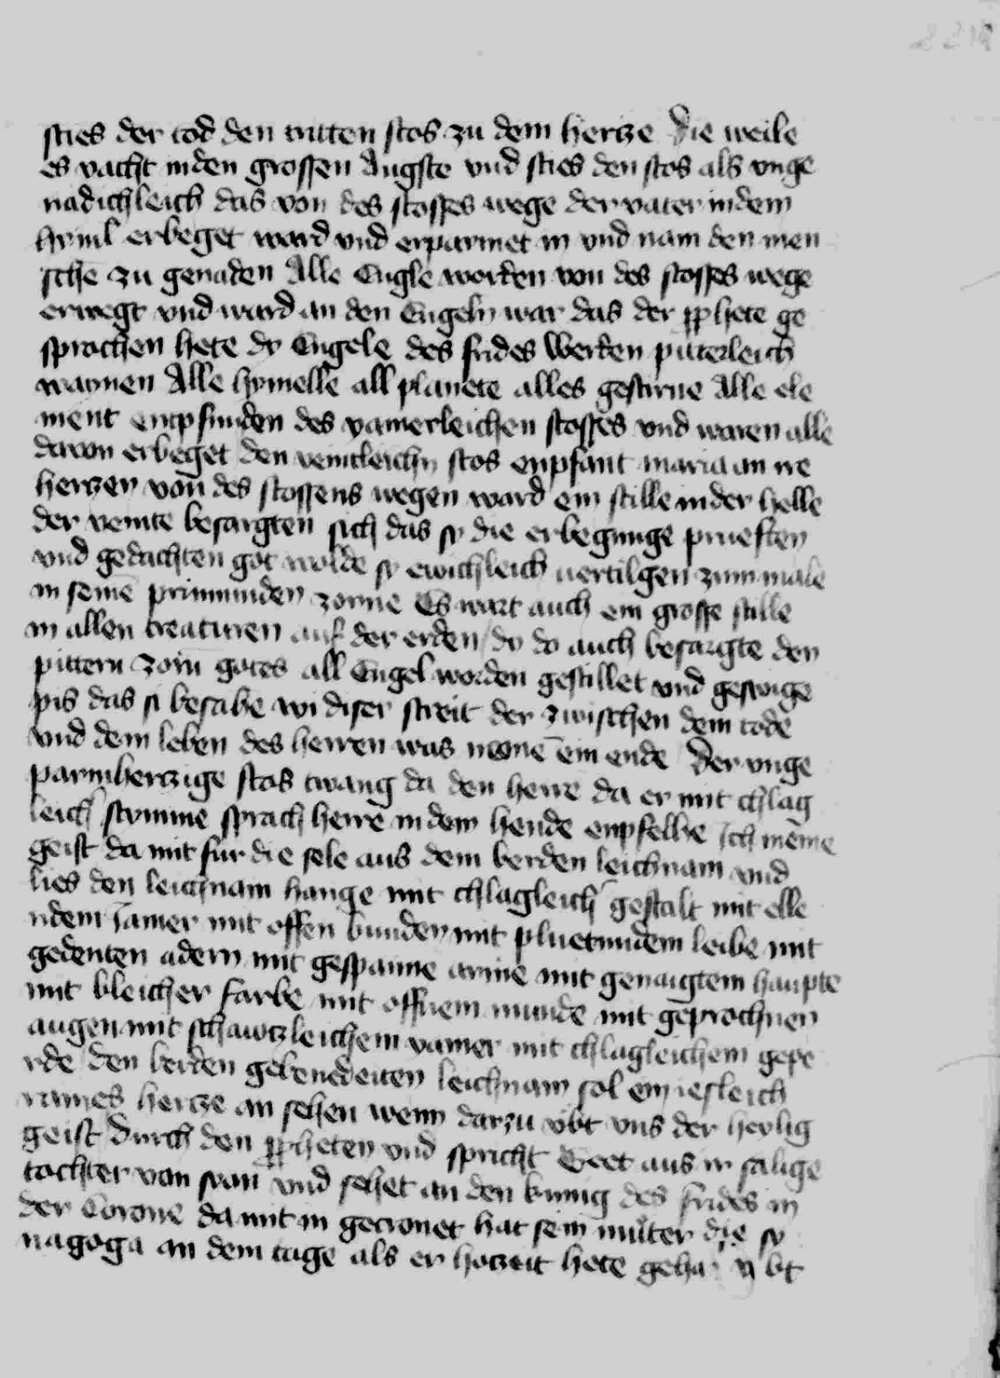 sties der tod den tritten stos zu dem hertze Die weile
es vacht in den grossen Angste vnd sties den stos als vnge
nadichleich das von des stosses wege der vater in dem
hyml erbeget ward vnd erparmet in vnd nam den men
sche zu genaden Alle Engle worden von des stosses wege
erwegt vnd ward an den Engeln war das der pphete ge
sprochen hete dy Engele des frides Werden pitterleich
waynen Alle hymelle all planete alles gestirne Alle ele
ment enpfunden des yamerleichen stosses vnd waren alle
dauon erbeget den veintleichn stos enpfant maria an ire
hertzen von des stossens wegen ward ein stille in der helle
der veinte besargten sich das sy die erbegunge prueften
vnd gedachten got wolde sy ewichleich vertilgen zum male
in seine prinnunden zorne Es wart auch ein grosse stille
in allen creaturen auf der erden dy do auch besargte den
pittern zorn gotes all Engel worden gestillet vnd geswige
pis das si besahe wi diser streit der zwischen dem tode
vnd dem leben des herren was neme ein ende Der vnge
parmhertzige stos twang da den herre da er mit chlag
leich stymme sprach herre in dein hende enpfellie ich meine
geist da mit fur die sele aus dem berden leichnam vnd
lies den leichnam hange mit chlagleich gestalt mit elle
ndem Jamer mit offen bunden mit pluetundem leibe mit
gedenten adern mit gespanne arme mit genaigtem haupte
mit bleicher farbe mit offnem munde mit geprochnen
augen mit schawtzleichem yamer mit chlagleichem gepe
rde den berden gebenedeiten leichnam sol ein iesleich
raines hertze an sehen wenn darzu vbt vns der heylig
geist durch den ppheten vnd spricht Geet aus ir salige
tochter von syon vnd sehet an den kunig des frides in
der Corone da mit in gecronet hat sein muter die sy
nagoga an dem tage als er hotzeit hete